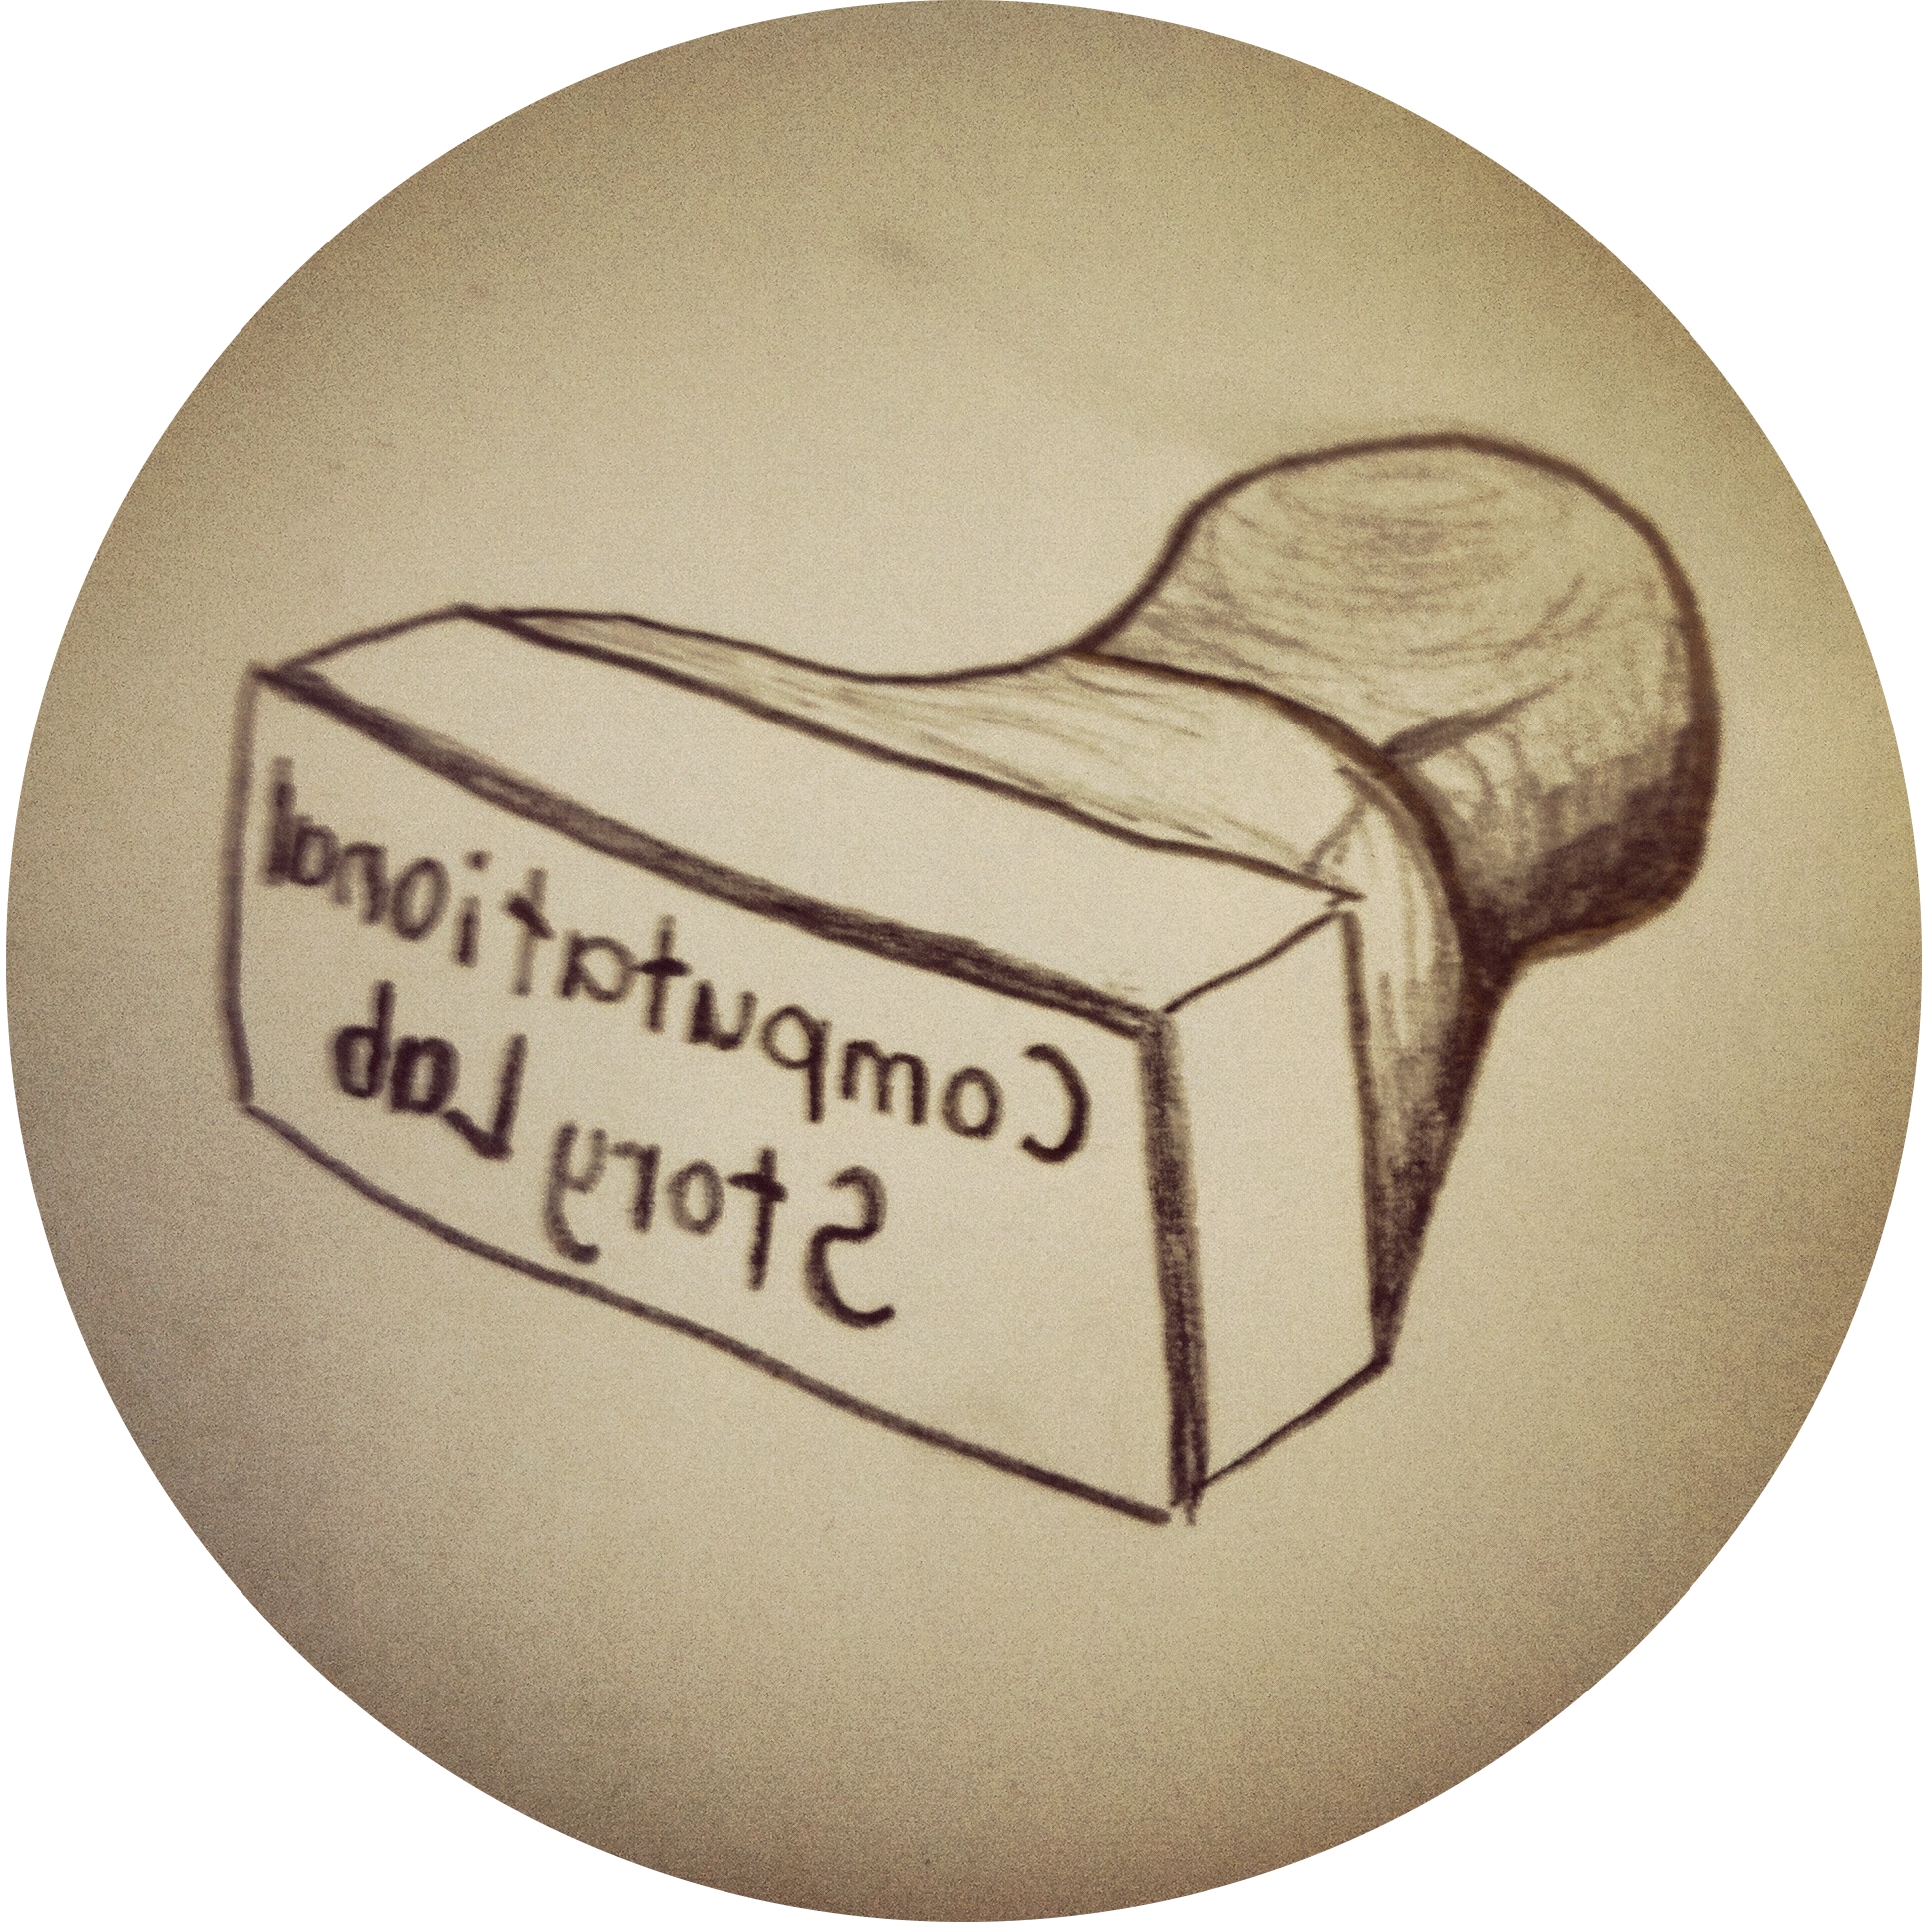 Computational
Story Lab